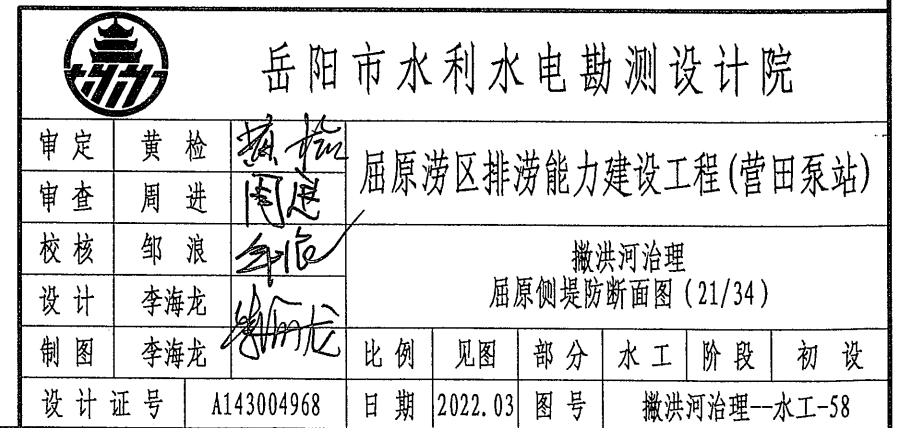 岳阳市水利水电勘测设计院
审定 黄检 黄检 屈原涝区排涝能力建设工程(营田泵站)
审查 周进 周进
校核 邹浪 邹浪 撇洪河治理
屈原侧堤防断面图(21/34)
设计 李海龙 李海龙
制图 李海龙 比例 见图 部分 水工 阶段 初设
设计证号 A143004968 日期 2022.03 图号 撇洪河治理--水工-58